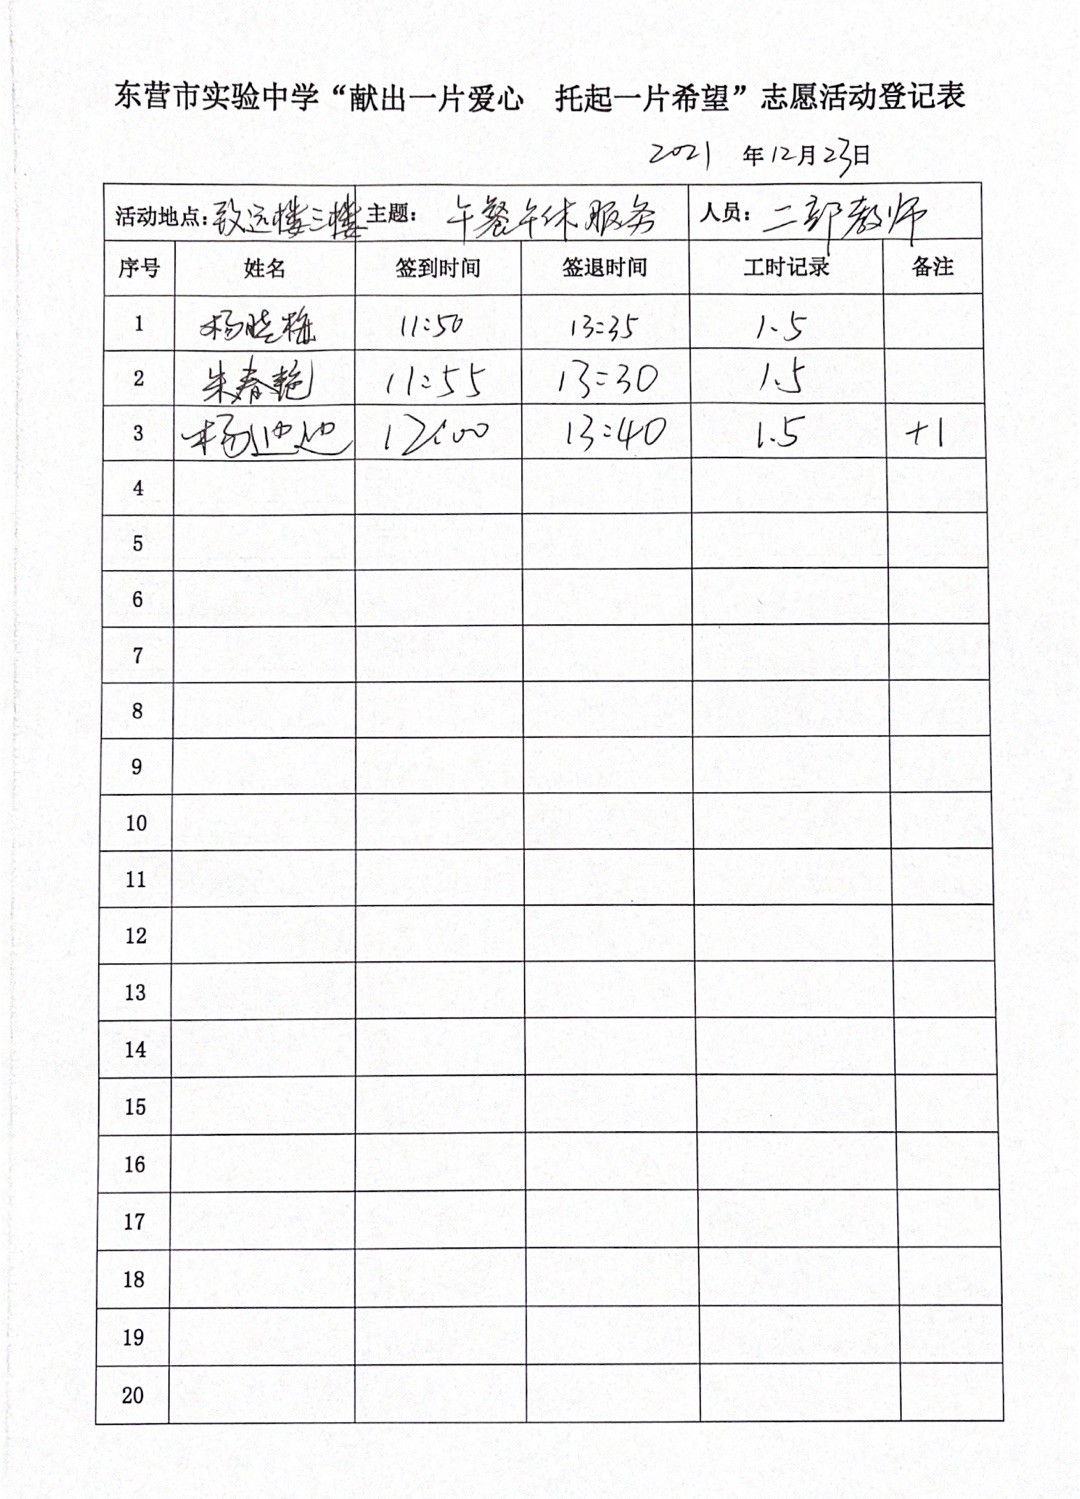 东营市实验中学“献出一片爱心 托起一片希望”志愿活动登记表
2021 年12月23日
活动地点:致远楼三楼 主题: 午餐午休服务 人员: 二部教师
序号 姓名 签到时间 签退时间 工时记录 备注
1 杨晓梅 11:50 13:35 1.5
2 朱春艳 11:55 13:30 1.5
3 杨迎迎 12:00 13:40 1.5 +1
4
5
6
7
8
9
10
11
12
13
14
15
16
17
18
19
20